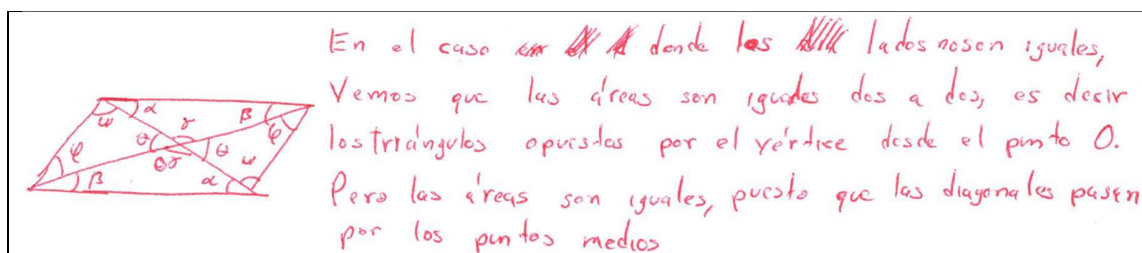 En el caso donde los lados no son iguales,
Vemos que las áreas son iguales dos a dos, es decir
los triángulos opuestos por el vértice desde el punto O.
Pero las áreas son iguales, puesto que las diagonales pasen
por los puntos medios
ω α β γ φ
θ θ
φ O γ ω
β α